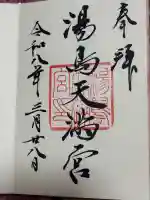 奉拝
湯島天満宮
令和八年三月廿八日